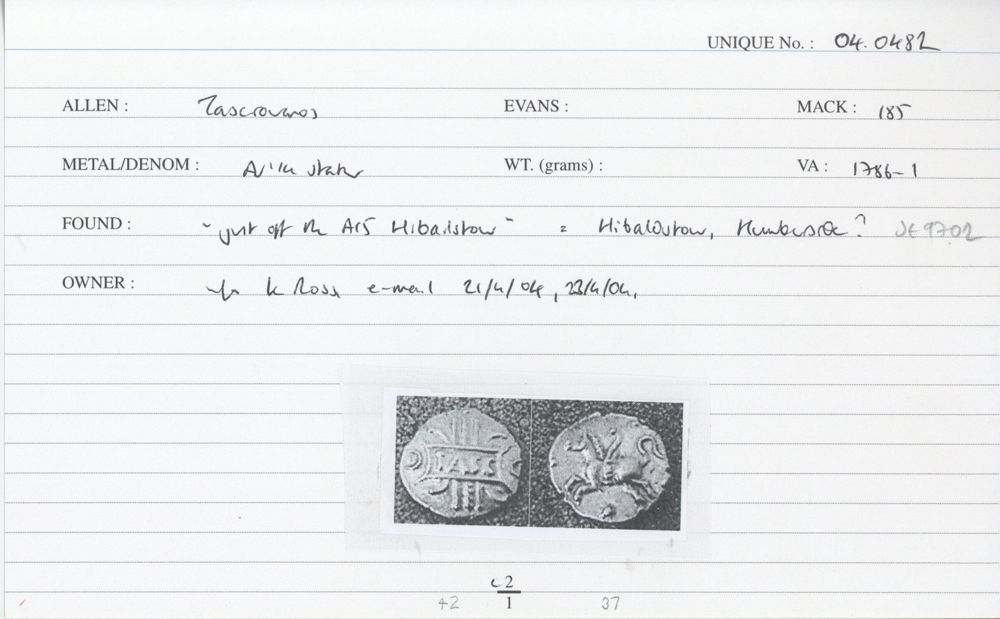 UNIQUE No. : 04.0482
ALLEN : Tasciovanos EVANS : MACK : 185
METAL/DENOM : AV 1/4 stater WT. (grams) : VA : 1786-1
FOUND : "just off the A15 Hibailstow" = Hibaldstow, Humberside? SE 9702
OWNER : K Ross e-mail 21/4/04, 23/4/04.
TASC
c2
42 1 37